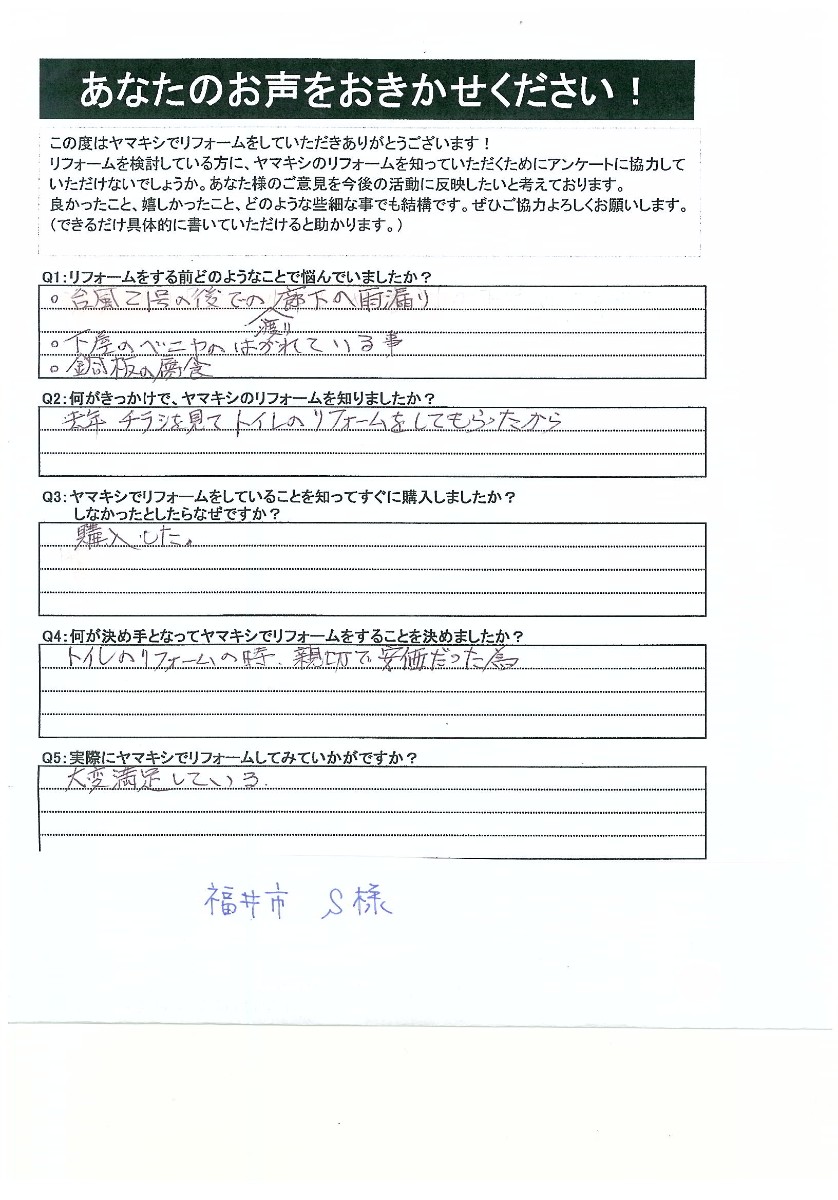 あなたのお声をおきかせください！
この度はヤマキシでリフォームをしていただきありがとうございます！
リフォームを検討している方に、ヤマキシのリフォームを知っていただくためにアンケートに協力して
いただけないでしょうか。あなた様のご意見を今後の活動に反映したいと考えております。
良かったこと、嬉しかったこと、どのような些細な事でも結構です。ぜひご協力よろしくお願いします。
（できるだけ具体的に書いていただけると助かります。）
Q1：リフォームをする前どのようなことで悩んでいましたか？
○ 台風21号の後での廊下の雨漏り
渡り
○ 下屋のベニヤのはがれている事
○ 銅板の腐食
Q2：何がきっかけで、ヤマキシのリフォームを知りましたか？
去年 チラシを見てトイレのリフォームをしてもらったから
Q3：ヤマキシでリフォームをしていることを知ってすぐに購入しましたか？
しなかったとしたらなぜですか？
購入した。
Q4：何が決め手となってヤマキシでリフォームをすることを決めましたか？
トイレのリフォームの時、親切で安価だった為
Q5：実際にヤマキシでリフォームしてみていかがですか？
大変満足している.
福井市 S様